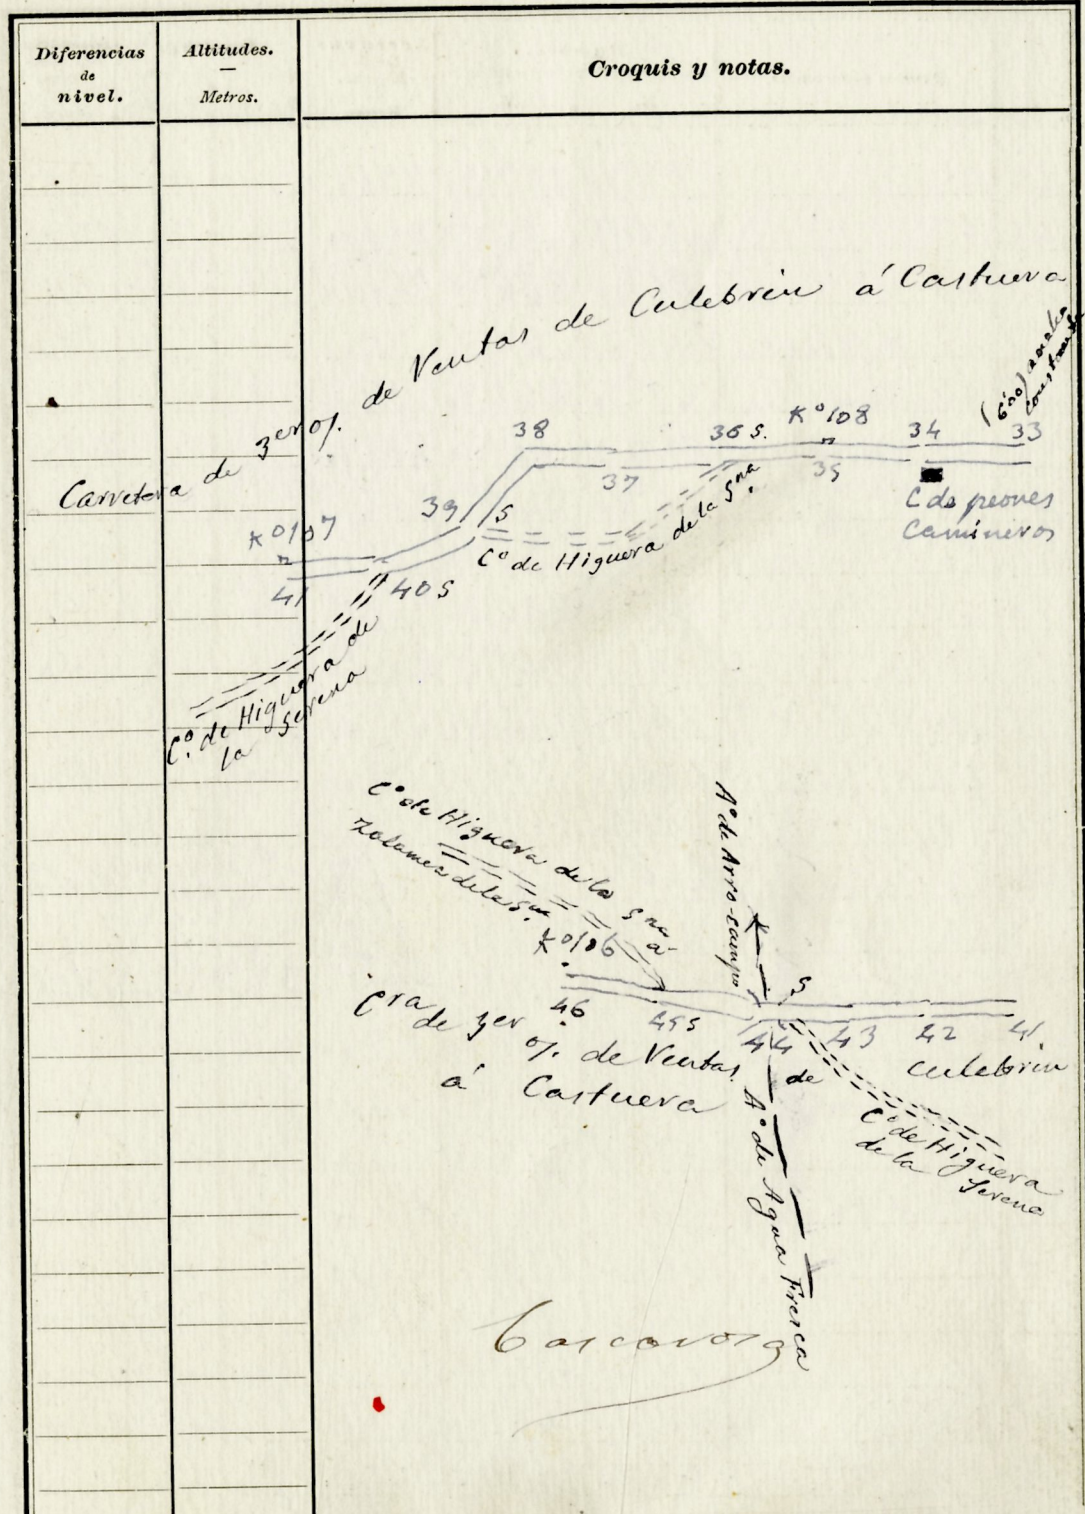 Diferencias
de
nivel.
Altitudes.
Metros.
Croquis y notas.
Carretera de 3er o/. de Ventas de Culebrin á Castuera
(6'00) ancho
constante
38
36 S.
Kº 108
34
33
37
35
C de peones
Camineros
39
S
Cº de Higuera de la Sna.
Kº 107
41
40 S
Cº. de Higuera de
la Serena
Cº de Higuera de la Sna á
Zalamea de la Sna.
Kº 106
Aº de Arro-campo
S
46
45 S
44
43
42
41.
Cra de 3er o/. de Ventas de Culebrin
á Castuera
Aº de Agua Fresca
Cº de Higuera
de la Serena